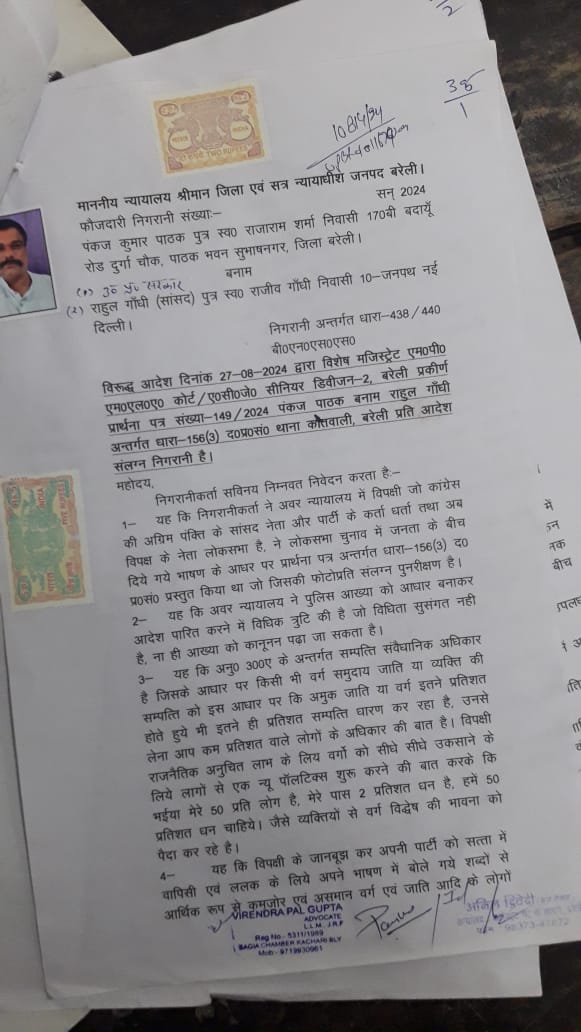 2
38
1
INDIA
TWO RUPEES
माननीय न्यायालय श्रीमान जिला एवं सत्र न्यायाधीश जनपद बरेली।
फौजदारी निगरानी संख्याः– सन् 2024
पंकज कुमार पाठक पुत्र स्व0 राजाराम शर्मा निवासी 170बी बदायूँ
रोड दुर्गा चौक, पाठक भवन सुभाषनगर, जिला बरेली।
बनाम
(1) उ0 प्र0 सरकार
(2) राहुल गाँधी (सांसद) पुत्र स्व0 राजीव गाँधी निवासी 10–जनपथ नई
दिल्ली।
निगरानी अन्तर्गत धारा–438/440
बी0एन0एस0एस0
विरूद्ध आदेश दिनांक 27-08-2024 द्वारा विशेष मजिस्ट्रेट एम0पी0
एम0एल0ए0 कोर्ट/ए0सी0जे0 सीनियर डिवीजन–2, बरेली प्रकीर्ण
प्रार्थना पत्र संख्या–149/2024 पंकज पाठक बनाम राहुल गाँधी
अन्तर्गत धारा–156(3) द0प्र0सं0 थाना कोतवाली, बरेली प्रति आदेश
संलग्न निगरानी है।
महोदय,
निगरानीकर्ता सविनय निम्नवत निवेदन करता है:–
1– यह कि निगरानीकर्ता ने अवर न्यायालय में विपक्षी जो कांग्रेस
की अग्रिम पंक्ति के सांसद नेता और पार्टी के कर्ता धर्ता तथा अब
विपक्ष के नेता लोकसभा है, ने लोकसभा चुनाव में जनता के बीच
दिये गये भाषण के आधर पर प्रार्थना पत्र अन्तर्गत धारा–156(3) द0
प्र0सं0 प्रस्तुत किया था जो जिसकी फोटोप्रति संलग्न पुनरीक्षण है।
2– यह कि अवर न्यायालय ने पुलिस आख्या को आधार बनाकर
आदेश पारित करने में विधिक त्रुटि की है जो विधिता सुसंगत नही
है, ना ही आख्या को कानूनन पढ़ा जा सकता है।
3– यह कि अनु0 300ए के अन्तर्गत सम्पत्ति संवैधानिक अधिकार
है जिसके आधार पर किसी भी वर्ग समुदाय जाति या व्यक्ति की
सम्पत्ति को इस आधार पर कि अमुक जाति या वर्ग इतने प्रतिशत
होते हुये भी इतने ही प्रतिशत सम्पत्ति धारण कर रहा है, उनसे
लेना आप कम प्रतिशत वाले लोगों के अधिकार की बात है। विपक्षी
राजनैतिक अनुचित लाभ के लिय वर्गो को सीधे सीधे उकसाने के
लिये लागों से एक न्यू पॉलटिक्स शुरू करने की बात करके कि
भईया मेरे 50 प्रति लोग है, मेरे पास 2 प्रतिशत धन है, हमें 50
प्रतिशत धन चाहिये। जैसे व्यक्तियों से वर्ग विद्वेष की भावना को
पैदा कर रहे है।
4– यह कि विपक्षी के जानबूझ कर अपनी पार्टी को सत्ता में
वापिसी एवं ललक के लिये अपने भाषण में बोले गये शब्दों से
आर्थिक रूप से कमजोर एवं असमान वर्ग एवं जाति आदि के लोगों
VIRENDRA PAL GUPTA
ADVOCATE
L.L.M. J.R.F
Reg No.- 5311/1989
BAGIA CHAMBER KACHARI BLY
Mob:- 9719930961
अंकित द्विवेदी
में
तक
बीच